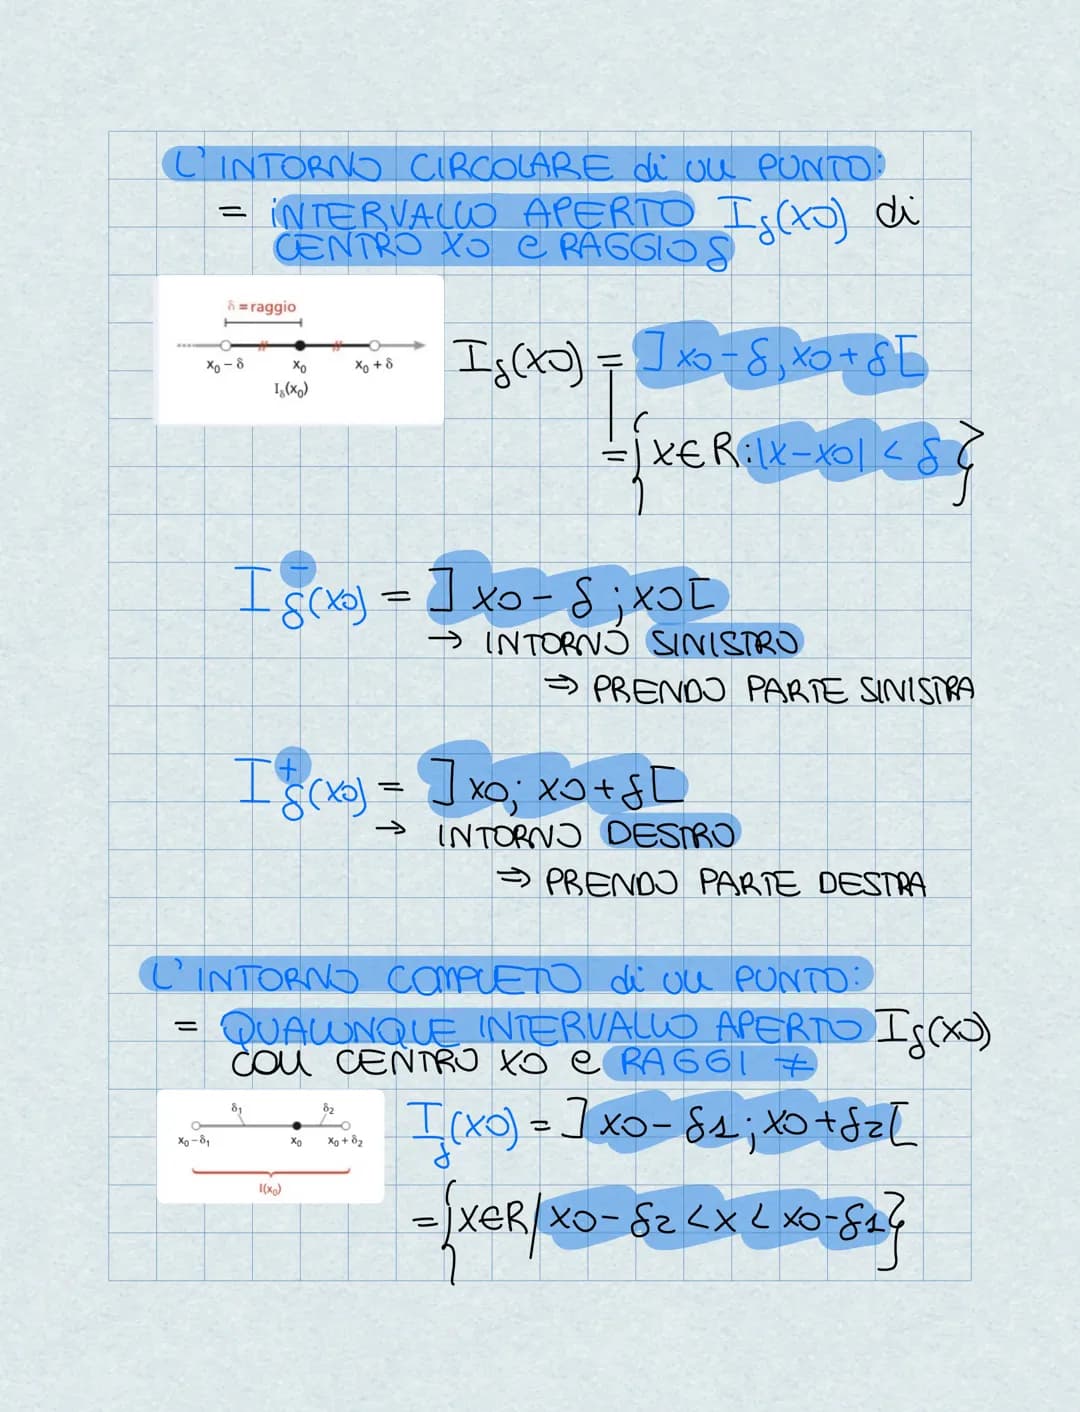 L'INTORNO CIRCOLARE di un PUNTO:
= INTERVALLO APERTO Iδ(x0) di
CENTRO x0 e RAGGIO δ
δ = raggio
x₀ - δ x₀ x₀ + δ
Iδ(x₀)
Iδ(x0) = ]x0-δ, x0+δ[
= {x∈R: |x-x0| < δ}
I⁻δ(x0) = ]x0-δ; x0[
→ INTORNO SINISTRO
⇒ PRENDO PARTE SINISTRA
I⁺δ(x0) = ]x0; x0+δ[
→ INTORNO DESTRO
⇒ PRENDO PARTE DESTRA
L'INTORNO COMPLETO di un PUNTO:
= QUALUNQUE INTERVALLO APERTO Iδ(x0)
con CENTRO x0 e RAGGI ≠
δ₁ δ₂
x₀-δ₁ x₀ x₀+δ₂
I(x₀)
Iδ(x0) = ]x0-δ1; x0+δ2[
= {x∈R/ x0-δ2 < x < x0-δ1}